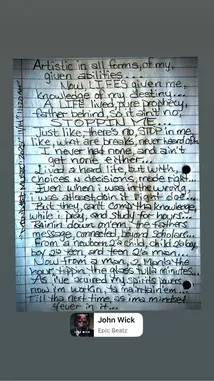 Artistic in all forms, of my,
given abilities....
Now, LIFES given me,
knowledge of my destiny...
A LIFE lived, pure prophecy,
father behind, so it aint no,
STOPPIN ME
Just like, there's no, STOP in me
like, what are breaks, never heard of'm
I never had none, and ain't
get none either...
Lived a hard life, but with,
choices as decisions, needa talk...
Even when i was in the wrong,
i was alteast, doin it right
But they can't comp tha knowledge
while i pray, and study for hours...
Rainin down on em, the fathers
message, connected beyond scholars...
From a newborn 2 a child, child 2 a boy
boy 2 a teen, and teen 2 a man..
Now from a man, 2 wants the
hour, tippin the glass full a minutes...
As i've acuired my spirits pours
now i'm workin, to maintain em...
Till tha next time, as ima mindset
4ever in it...
John Wick
Epic Beatz